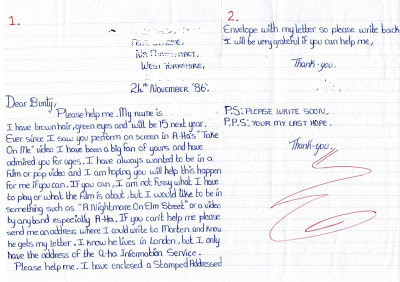 1.
West Yorkshire.
24th November '86.
Dear Bunty,
Please help me. My name is
I have brown hair, green eyes and will be 15 next year.
Ever since I saw you perform on screen in A-Ha's "Take
On Me" video I have been a big fan of yours and have
admired you for ages. I have always wanted to be in a
film or pop video and I am hoping you will help this happen
for me if you can. If you can, I am not fussy what I have
to play or what the film is about, but I would like to be in
something such as "A Nightmare On Elm Street" or a video
by any band especially A-Ha. If you can't help me please
send me an address where I could write to Morten and know
he gets my letter. I know he lives in London, but I only
have the address of the A-ha Information Service.
Please help me. I have enclosed a Stamped Addressed
2.
Envelope with my letter so please write back
I will be very grateful if you can help me,
Thank-you.
P.S: PLEASE WRITE SOON,
P.P.S: YOUR MY LAST HOPE.
Thank-you